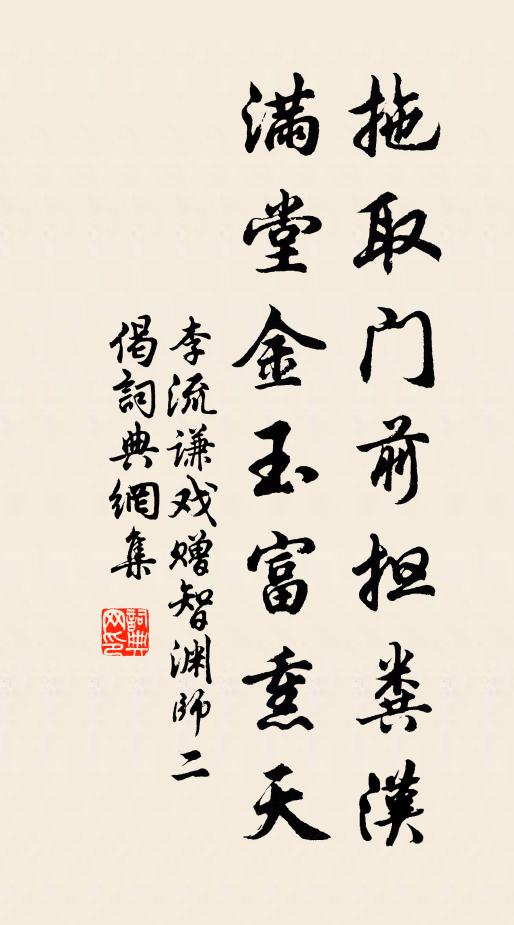 拖取门前担粪漢
满堂金玉富熏天
李流谦戏赠智渊师二
偈詞典網集
詞典网印